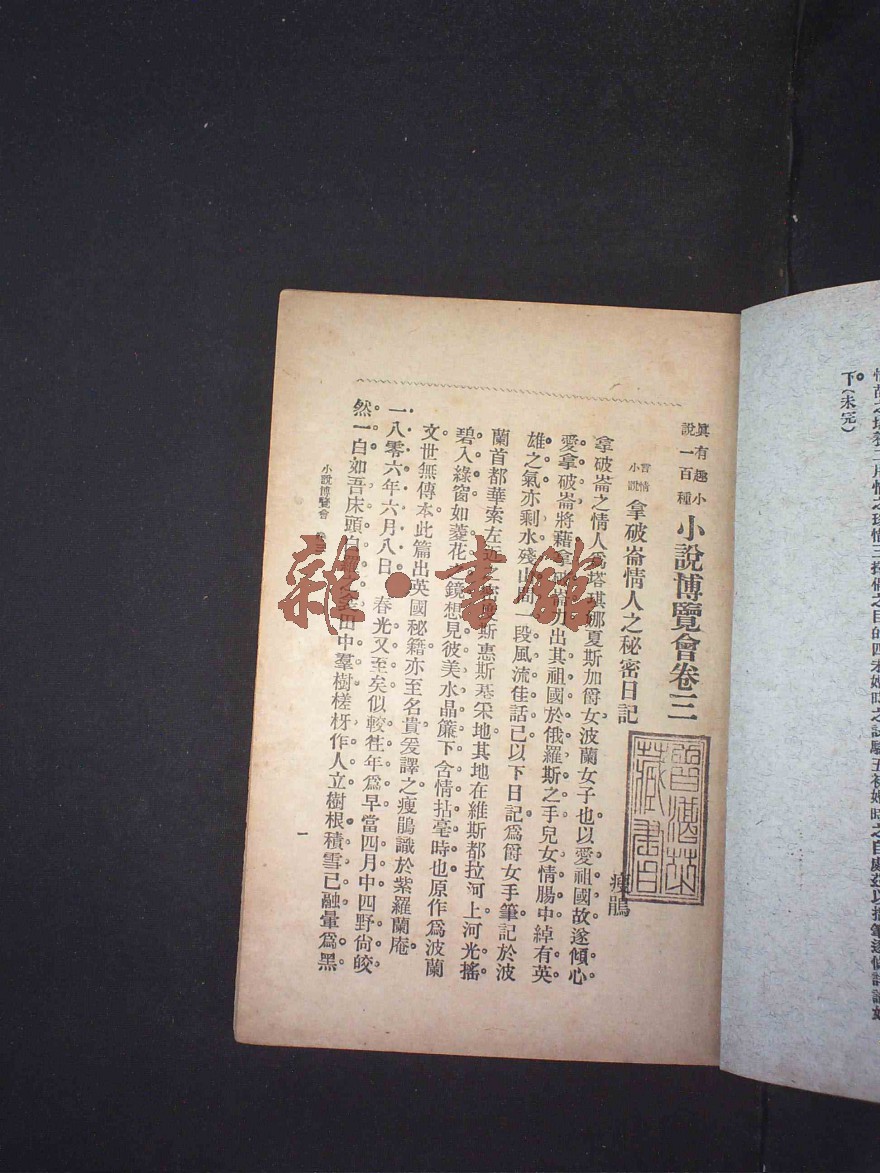 情
下。(未完)
真有趣小
說一百種
小說博覽會卷三
言情
小說
拿破崙情人之秘密日記
瘦鵑
拿破崙之情人爲塔琪娜夏斯加爵女波蘭女子也以愛祖國故遂傾心
愛拿破崙將藉拿破崙力出其祖國於俄羅斯之手兒女情腸中綽有英
雄之氣亦剩水殘山間一段風流佳話已以下日記爲爵女手筆記於波
蘭首都華索左近之 斯惠斯 地其地在維斯都拉河上河光搖
碧入綠窗如菱花之鏡想見彼美水晶簾下含情拈毫時也原作爲波蘭
文世無傳本此篇出英國秘籍亦至名貴爰譯之瘦鵑識於紫羅蘭庵
一八零六年六月八日 春光又至矣似較往年爲早當四月中四野尙皎
然一白如吾床頭白 之 田中羣樹槎枒作人立樹根積雪已融暈爲黑
小說博覽會 卷三
一
藏書
雜·書館